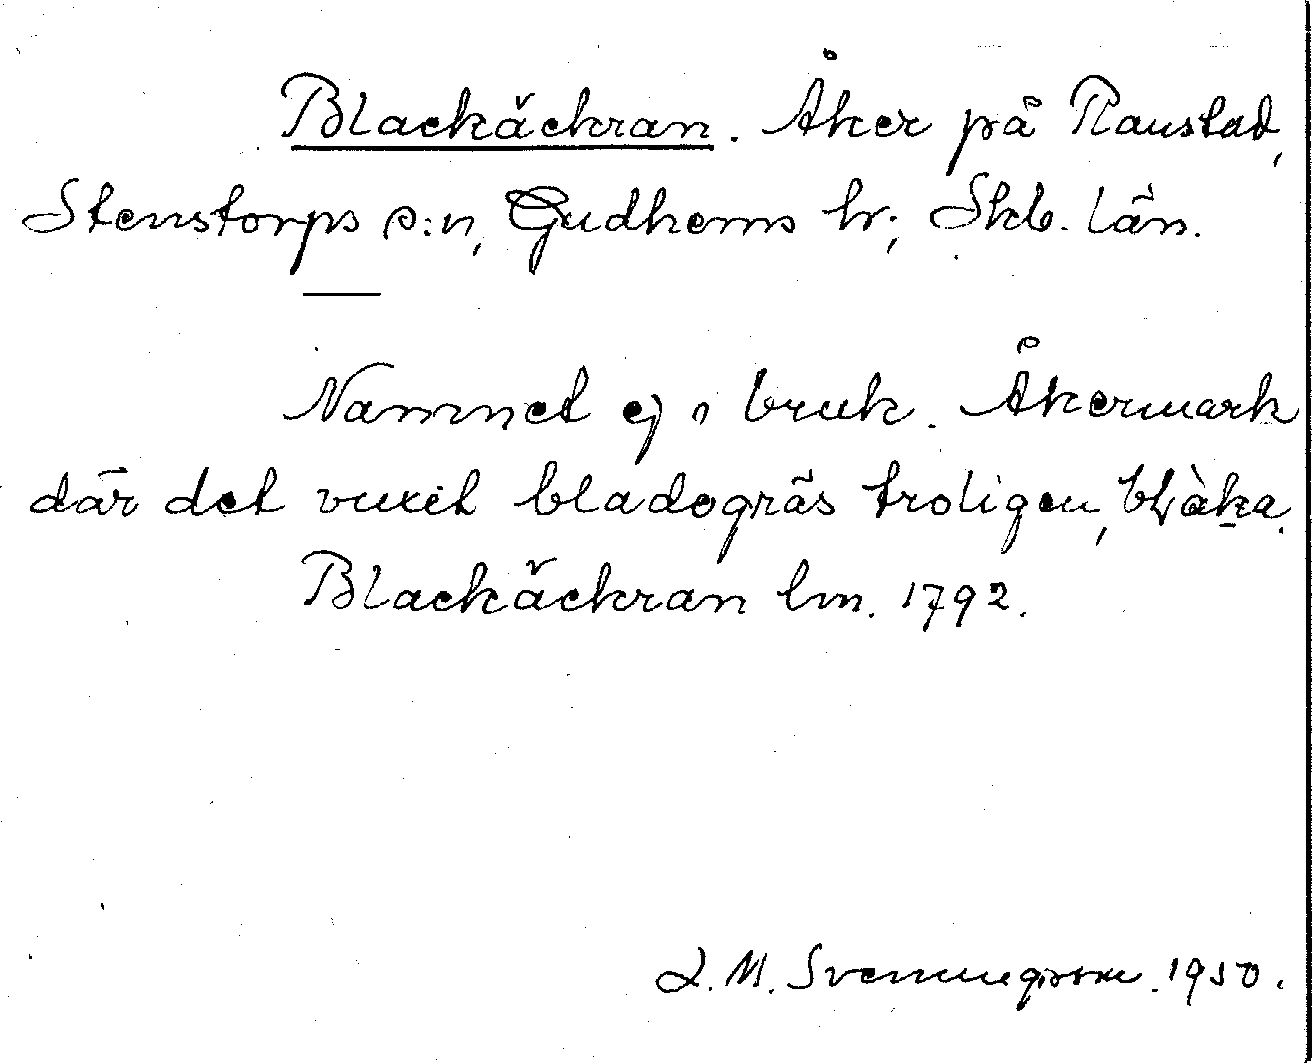 Blackäckran. Åker på Raustad,
Stenstorps s:n, Gudhems hr; Skb. län.
Namnet ej i bruk. Åkermark
där det vuxit bladogräs troligen,
Blackäckran lm. 1792.
L. M. Svenungsson. 1950.